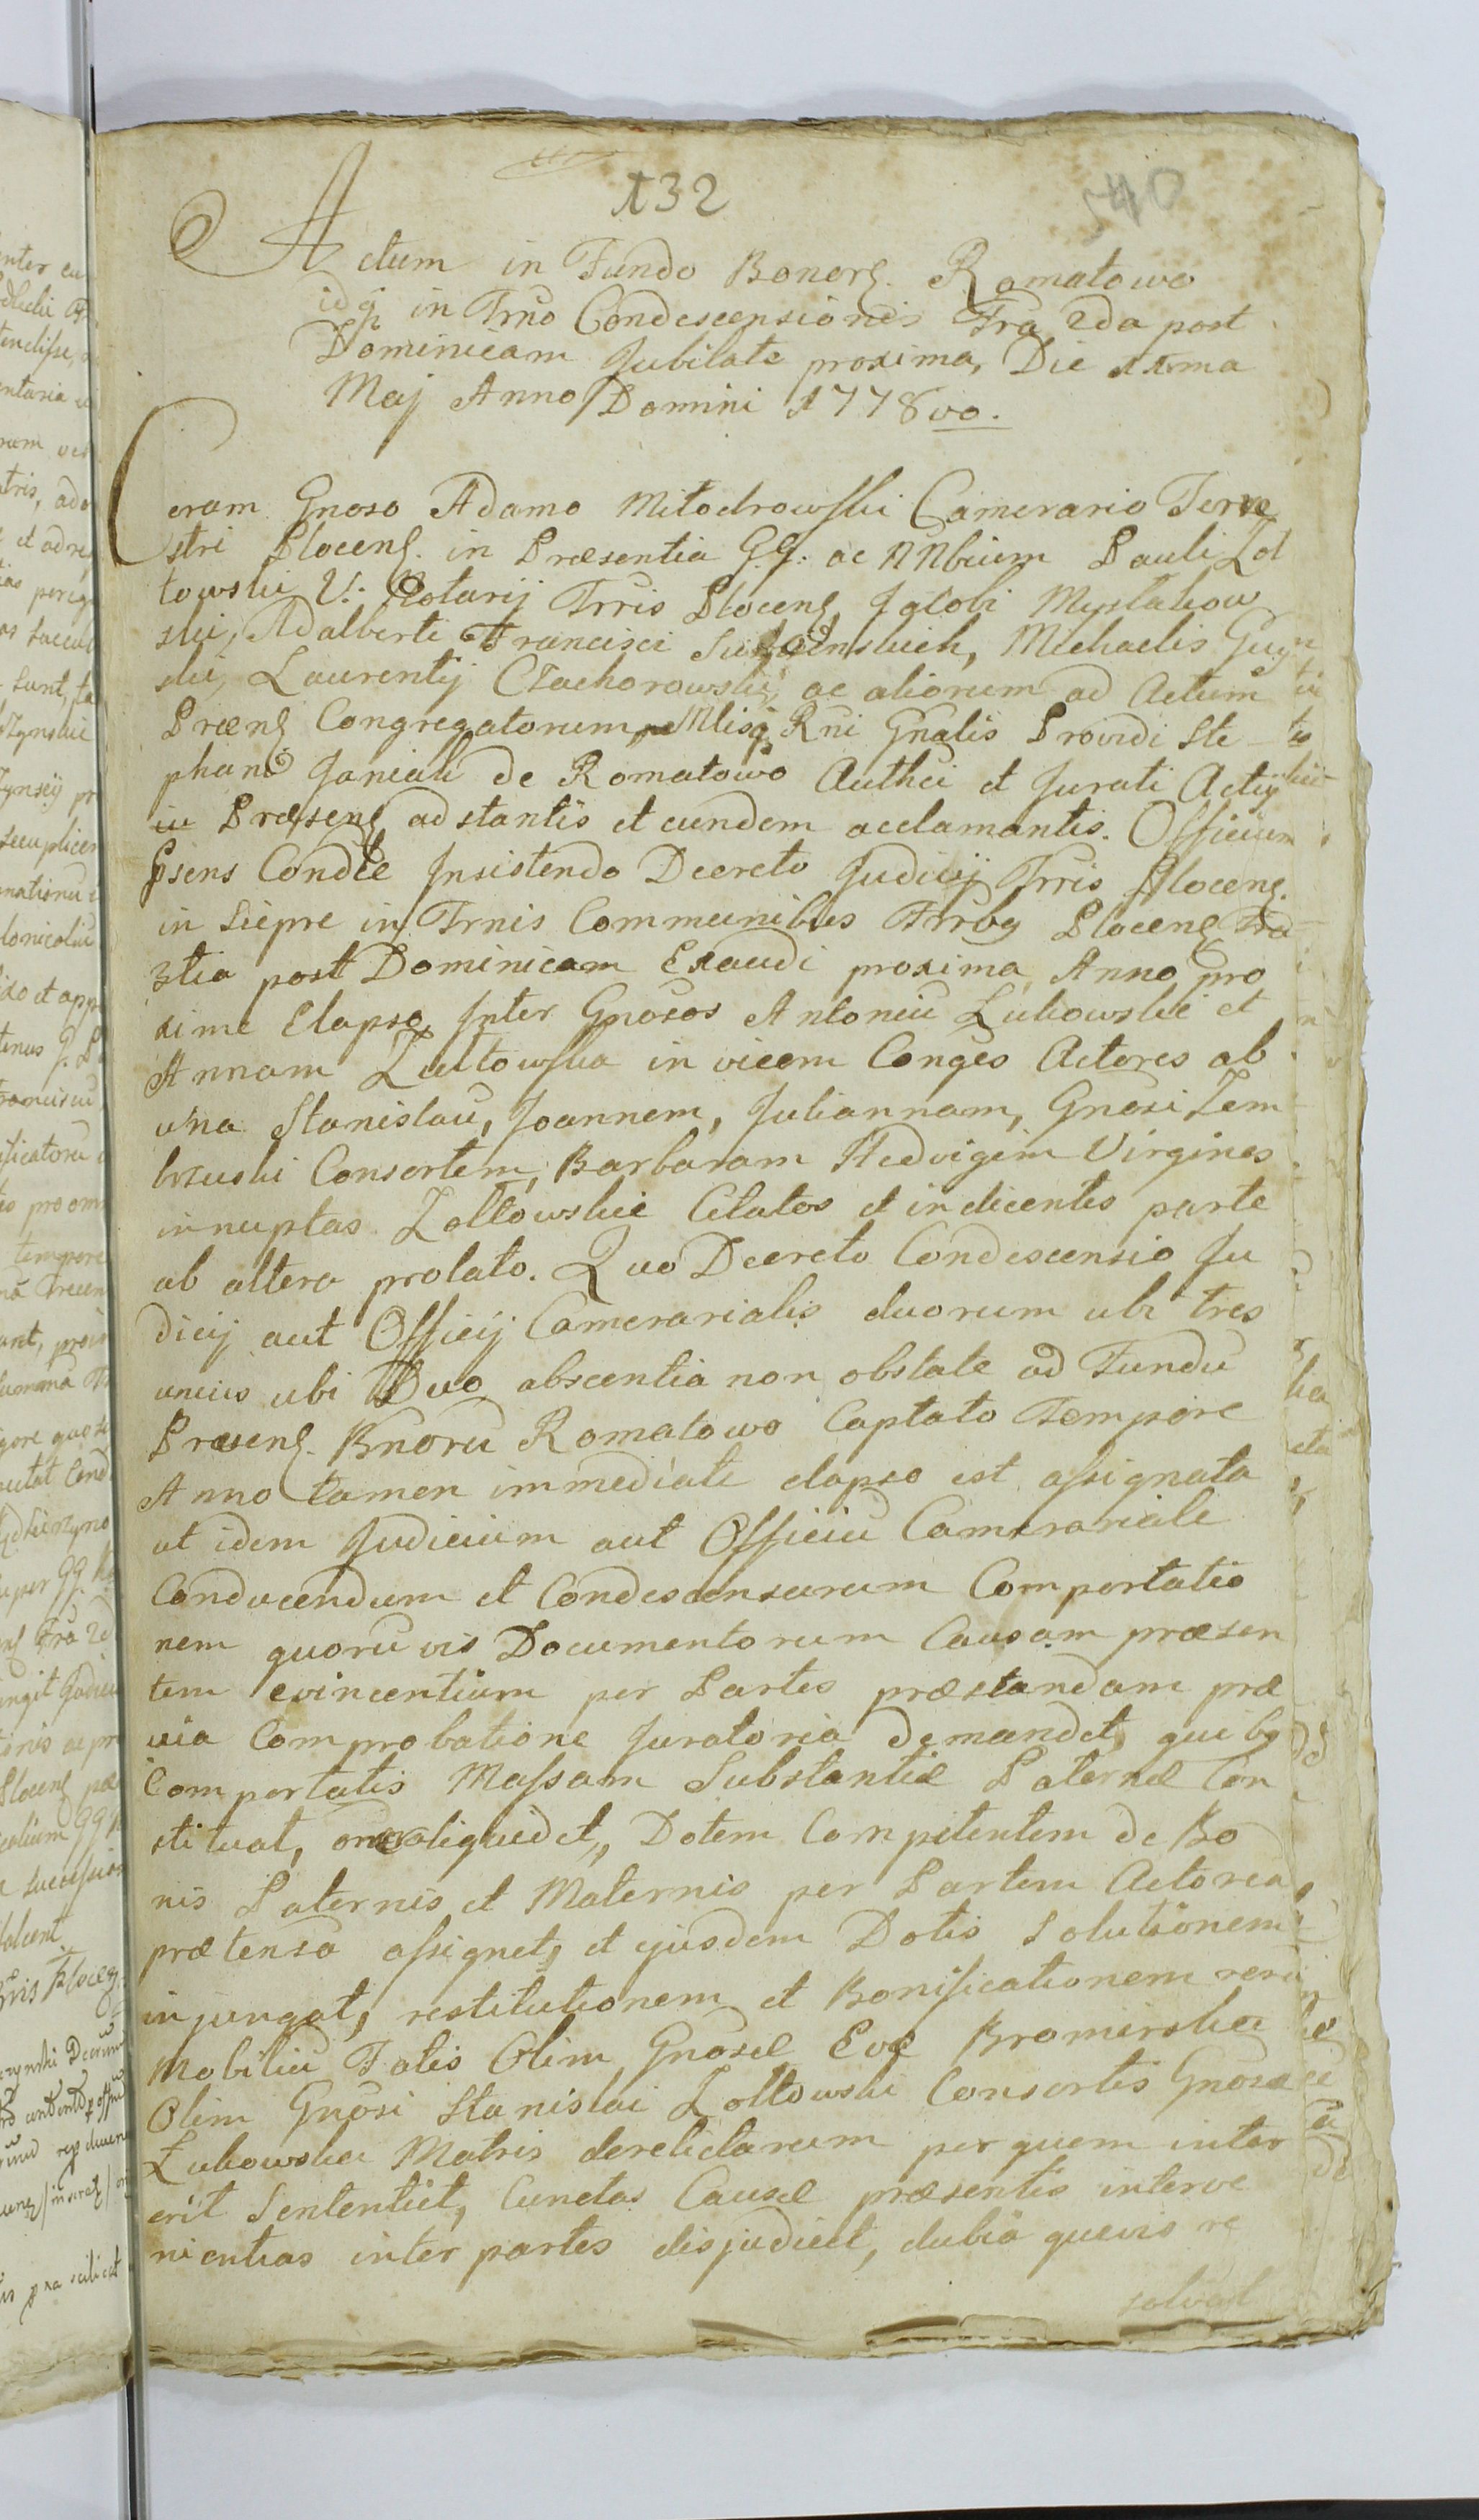 132
540
Actum in Fundo Bonorȩ. Romatowo
idq̨ in Trno Condescensionis Fra 2da post
Dominicam Jubilate proxima, Die 11ma
Maj Anno Domini 1778vo.
Coram Gnoso Adamo Mitodrowski Camerario Terre
stri Plocenȩ. in Præsentia G.G. ac NNbium Pauli Zol
towski V. Notarij Trris Plocenȩ, Jacobi Mystakow
ski, Adalberti Francisci Michaelis
ski, Laurentij Czachorowski, ac aliorum ad Actum
Prænȩ Congregatorum, Mlisq̨ Rni Gnalis Providi Ste
phani Janiak de Romatowo Authci et Jurati Actui
Præsenȩ adstantis et eundem acclamantis. Officium
Psens Condle Insistendo Decreto Judicij Trris Plocenȩ.
in Siepre in Trnis Communibus Trrbg Plocenȩ Fra
3tia post Dominicam Exaudi proxima, Anno pro
xime Elapso Inter Gnosos Antoniu Lukowski et
Annam Zultowska in vicem Conges Actores ab
una Stanislau, Joannem, Juliannam, Gnosi Zem
brzuski Consortem, Barbaram Hedvigem Virgines
innuptas Zoltowskie Citatos et indicentes parte
ab altera prolato. Quo Decreto Condescensio Ju
dicij aut Officij Camerarialis duorum ubi tres
unius ubi Duo abscentia non obstate ad Fundu
Præsenȩ. Bnoru Romatowo Captato Tempore
Anno tamen immediate elapso est assignata
ut idem Judicium aut Officiu Camerariale
Conducendum et Condescensurum Comportatio
nem quoru vis Documentorum Causam præsen
tem evincentium per Partes præstandam præ
via Comprobatione Juratoria demandet, quibg
Comportatis Massam Substantiæ Paternæ Con
stituat, liquidet, Dotem Competentem de Bo
nis Paternis et Maternis per Partem Actorea
prætensa assignet, et ejusdem Dotis Solutionem
injungat, restitutionem et Bonificationem reru
Mobiliu Talis Olim Gnosæ Evæ Bromirska
Olim Gnosi Stanislai Zoltowski Consortis Gnosæ
Lukowska Matris derelictarum per quem inter
erit Sententiet, Cunctas Causæ præsentis interve
nientias inter partes disjudicet, dubia quævis re
solvat